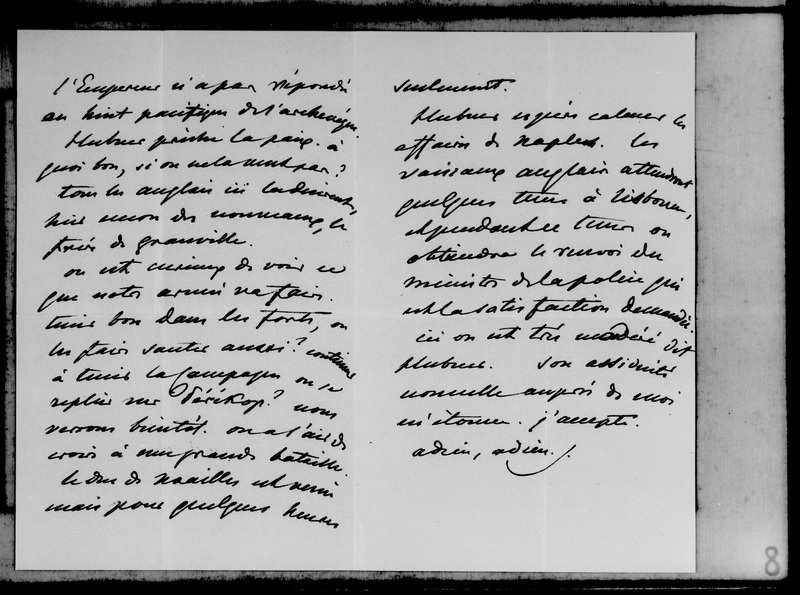 l'Empereur n'a pas répondu
au hint pacifique de l'archevêque.
Hubner prêche la paix. à
quoi bon, si on ne la veut pas?
tous les anglais ici la désirent,
hier encore des nouveaux, le
frère de granville.
on est curieux de voir ce
que notre armée va faire.
tenir bon dans les forts, ou
les faire sauter aussi? continuer
à tenir la Campagne ou se
replier sur Pérékop? nous
verrons bientôt. on a l'air de
croire à une grande bataille.
le duc de Noailles est venu
mais pour quelques heures
seulement.
Hubner espère calmer les
affaires de naples. les
vaisseaux anglais attendront
quelques tems à Lisbonne,
et pendant ce tems on
obtiendra le renvoi du
ministre de la police qui
est la satisfaction demandée.
ici on est très modéré dit
Hubner. son assiduité
nouvelle auprès de moi
m'étonne. j'accepte.
adieu, adieu.
8